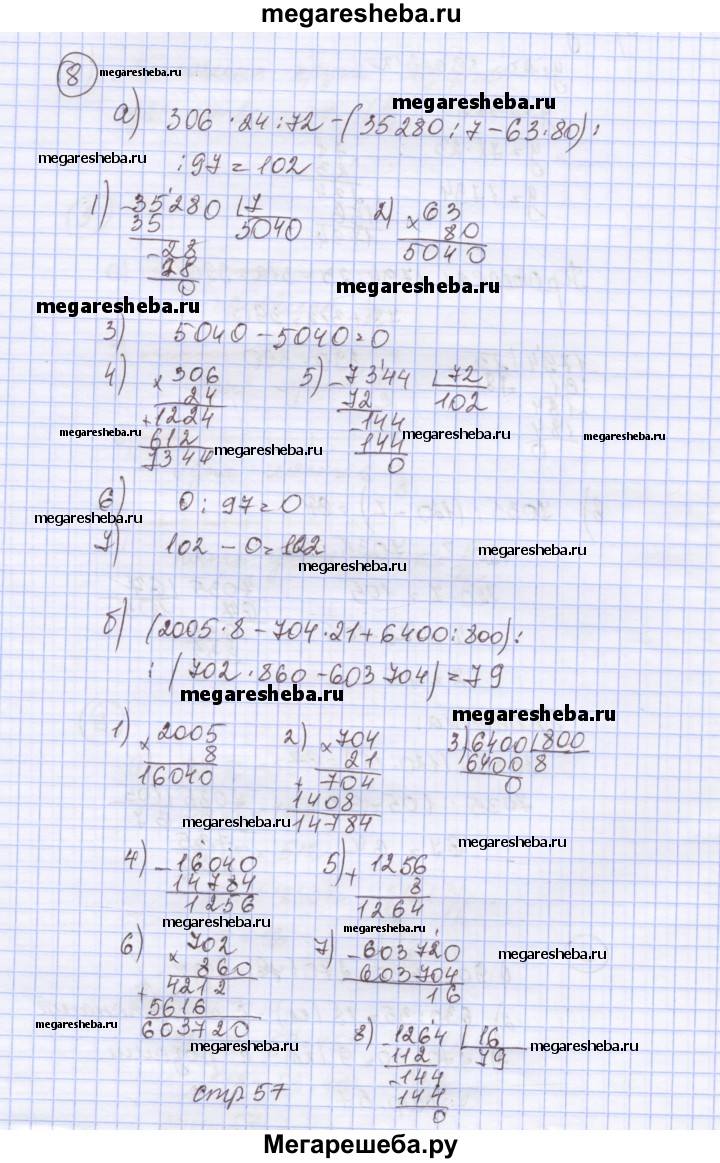 megaresheba.ru
8 megaresheba.ru
megaresheba.ru
а) 306 · 24 : 72 - (35280 : 7 - 63 · 80) :
megaresheba.ru : 97 = 102
1) -35280 | 7 2) × 63
35 5040 80
-28 5040
28
0
megaresheba.ru
megaresheba.ru
3) 5040 - 5040 = 0
4) × 306 5) -7344 | 72
24 72 102
+1224 -144
megaresheba.ru megaresheba.ru megaresheba.ru
612 144
7344 megaresheba.ru 0
6) 0 : 97 = 0
megaresheba.ru
7) 102 - 0 = 102 megaresheba.ru
megaresheba.ru
б) (2005 · 8 - 704 · 21 + 6400 : 800) :
: (702 · 860 - 603704) = 79
megaresheba.ru
megaresheba.ru
1) × 2005 2) × 704 3) 6400 | 800
8 21 6400 8
16040 + 704 0
1408
megaresheba.ru 14784
megaresheba.ru
4) -16040 5) + 1256
14784 8
1256 1264
megaresheba.ru megaresheba.ru
6) × 702 7) -603720 megaresheba.ru
860 603704
+ 4212 16
5616
megaresheba.ru 603720
8) -1264 | 16
megaresheba.ru 112 79 megaresheba.ru
-144
стр 57 144
0
Мегарешеба.ру